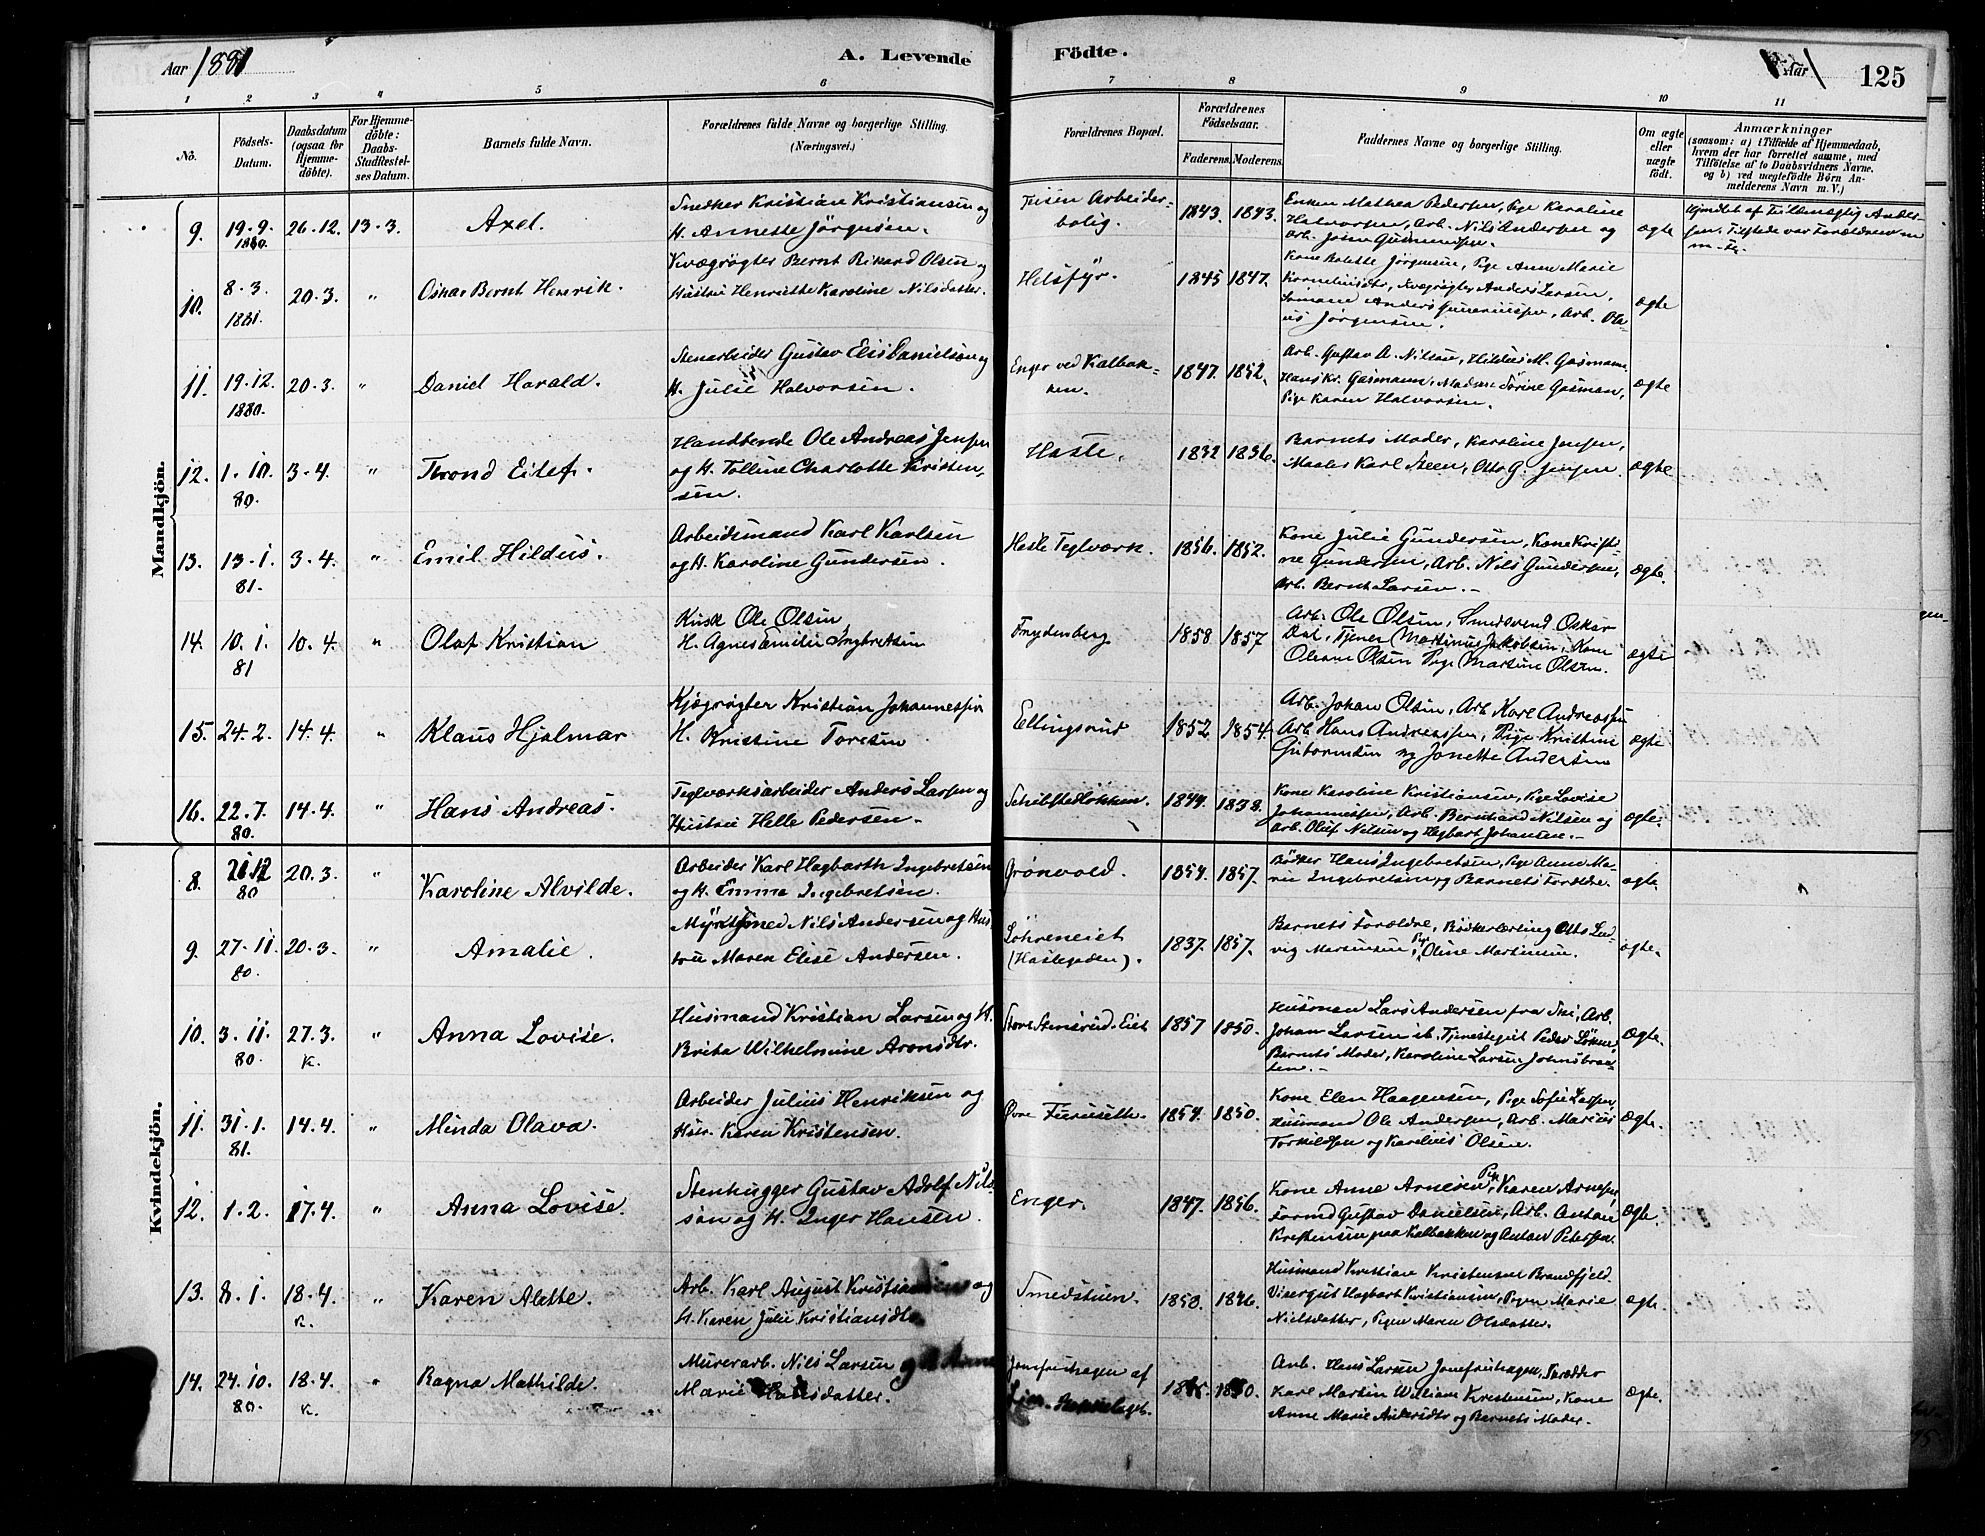 Aar 1881
A. Levende
Födte.
Aar
125
1
2
3
4
5
6
7
8
9
10
11
No.
Födsels-
Datum.
Daabsdatum
(ogsaa for
Hjemme-
döbte).
For Hjemme-
döbte:
Daabs-
Stadfæstel-
ses Datum.
Barnets fulde Navn.
Forældrenes fulde Navne og borgerlige Stilling.
(Næringsvei.)
Forældrenes Bopæl.
Forældrenes
Födselsaar.
Faderens.
Moderens.
Faddernes Navne og borgerlige Stilling.
Om ægte
eller
uægte
födt.
Anmærkninger
(saasom: a) i Tilfælde af Hjemmedaab,
hvem der har forrettet samme, med
Tilföielse af to Daabsvidners Navne.
og b) ved uægtefödte Börn An-
melderens Navn m. V.)
Mandkjön.
9. 19.9. 1880. 26.12. 13.3. Axel.
Snedker Kristian Kristiansen og
H. Annette Jörgensen.
Teisen Arbeider-
bolig.
1843. 1843.
Enken Mathea Pedersen, Pige Karoline
Halvorsen, Arb. Nils Andersen og
Arb. Gunnersen.
ægte
10. 8.3. 1881. 20.3. " Oskar Bernt Henrik.
Kvægrögter Bernt Rikard Olsen og
Hustru Henriette Karoline Nilsdatter.
Helsfyr.
1845 1847.
Kone Jörgensen, Pige Anne Marie
Korneliusdtr, Kvægrögter Anders Larsen,
Anders Gunerius, Arb. Ola-
us Jörgensen.
ægte
11. 19.12. 1880. 20.3. " Daniel Harald.
Stenarbeider Gustav Elis Danielson og
H. Julie Halvorsen.
Enger ved Kalbak-
ken.
1847. 1852.
Arb. Gustav A. Nilson, Hildus M. Gasmann,
Hans Kr. Gasmann, Madam Sörine Gasman,
Pige Karen Halvorsen.
ægte
12. 1.10. 80. 3.4. " Trond Eilef.
Ole Andreas Jensen
og H. Tolline Charlotte Kristen-
sen.
Hasle.
1832 1836.
Barnets Moder, Karoline Jensen,
Maaler Karl Steen, Otto G. Jensen
ægte
13. 13.1. 81. 3.4. " Emil Hildus.
Arbeidsmand Karl Karlsen
og H. Karoline Gundersen.
Hasle Teglværk.
1856. 1852.
Kone Julie Gundersen, Kone Kristi-
ne Gundersen, Arb. Nils Gundersen,
Arb. Bernt Larsen.
ægte.
14. 10.1. 81 10.4. " Olaf Kristian
Kusk Ole Olsen
H. Agnes Emilie Ingbretsen
Frydenberg
1858 1857
Arb. Ole Olsen, Smedsvend Oskar
Dal, Tjener Martinus Jakobsen, Kone
Oleane Olsen Pige Martine Olsen.
ægte
15. 24.2. 14.4. " Klaus Hjalmar
Kjøgrögter Kristian Johannessen
H. Kristine Toresen
Ellingsrud
1852 1854
Arb. Johan Olsen, Arb Karl Andreassen
Arb Hans Andreassen, Pige Kristine
Gutormsen og Janette Andersen
ægte
16. 22.7. 80. 14.4. " Hans Andreas.
Teglværksarbeider Anders Larsen og
Hustru Helle Pedersen.
Schibstedløkken.
1844. 1838.
Kone Karoline Kristiansen, Pige Lovise
Johannessen, Arb. Bernhard Nilsen og
Arb. Oluf Nilsen og Hagbart Johansen.
ægte.
Kvindekjön.
8. 80 20.3. " Karoline Alvilde.
Arbeider Karl Hagbarth Ingebretsen
og H. Emma Ingebretsen.
Grönvold.
1854. 1857.
Bödker Hans Ingebretsen, Pige Anne Ma-
rie Ingebretsen og Barnets Forældre.
ægte.
9. 27.11. 80. 20.3. " Amalie.
Nils Andersen og Hus-
tru Maren Elise Andersen.
(Haslegaden).
1837. 1857.
Barnets Forældre, Bödkerlærling Otto Lud-
vig, Pige Oline Martinsen.
ægte.
10. 3.11. 80. 27.3. K. " Anna Lovise.
Husmand Kristian Larsen og H.
Brita Wilhelmine Aronsdtr.
Store Stensrud-Eiet
1857 1850.
Husman Lars Andersen fra Ski, Arb.
Johan Larsen ib. Tjenestegut Peder Lökken,
Barnets Moder, Karoline Larsen
ægte.
11. 31.1. 81. 14.4. " Minda Olava.
Arbeider Julius Henriksen og
Hus. Karen Kristensen.
Øvre Furuseth.
1854. 1850.
Kone Elen Haagensen, Pige Sofie Larsen
Husmand Ole Andersen, Arb. Marius
Torkildsen og Karelius Olsen.
ægte.
12. 1.2. 17.4. " Anna Lovise
Stenhugger Gustav Adolf Nils-
son og H. Inger Hansen.
Enger.
1847. 1856.
Kone Anne Arnesen, Pige Karen Arnesen,
Formd Gustav Danielsen, Arb. Anton
Kristensen paa Kalbakken og Anton Petersen.
ægte.
13. 8.1. 18.4. K. " Karen Alette.
Arb. Karl August Kristiansen og
H. Karen Julie Kristiansdtr
Smedstuen.
1850. 1846.
Husmand Kristian Kristensen Brandfjeld.
Visergut Hagbart Kristiansen, Pigen Marie
Nielsdatter, Pigen Maren Olsdatter.
ægte.
14. 24.10. 80. 18.4. K. " Ragna Mathilde.
Murerarb. Nils Larsen og H. Anne
Marie
Jomfruhagen af
Arb. Hans Larsen Jomfruhagen,
Karl Martin William Kristensen, Kone
Anne Marie Andersdtr og Barnets Moder.
ægte.